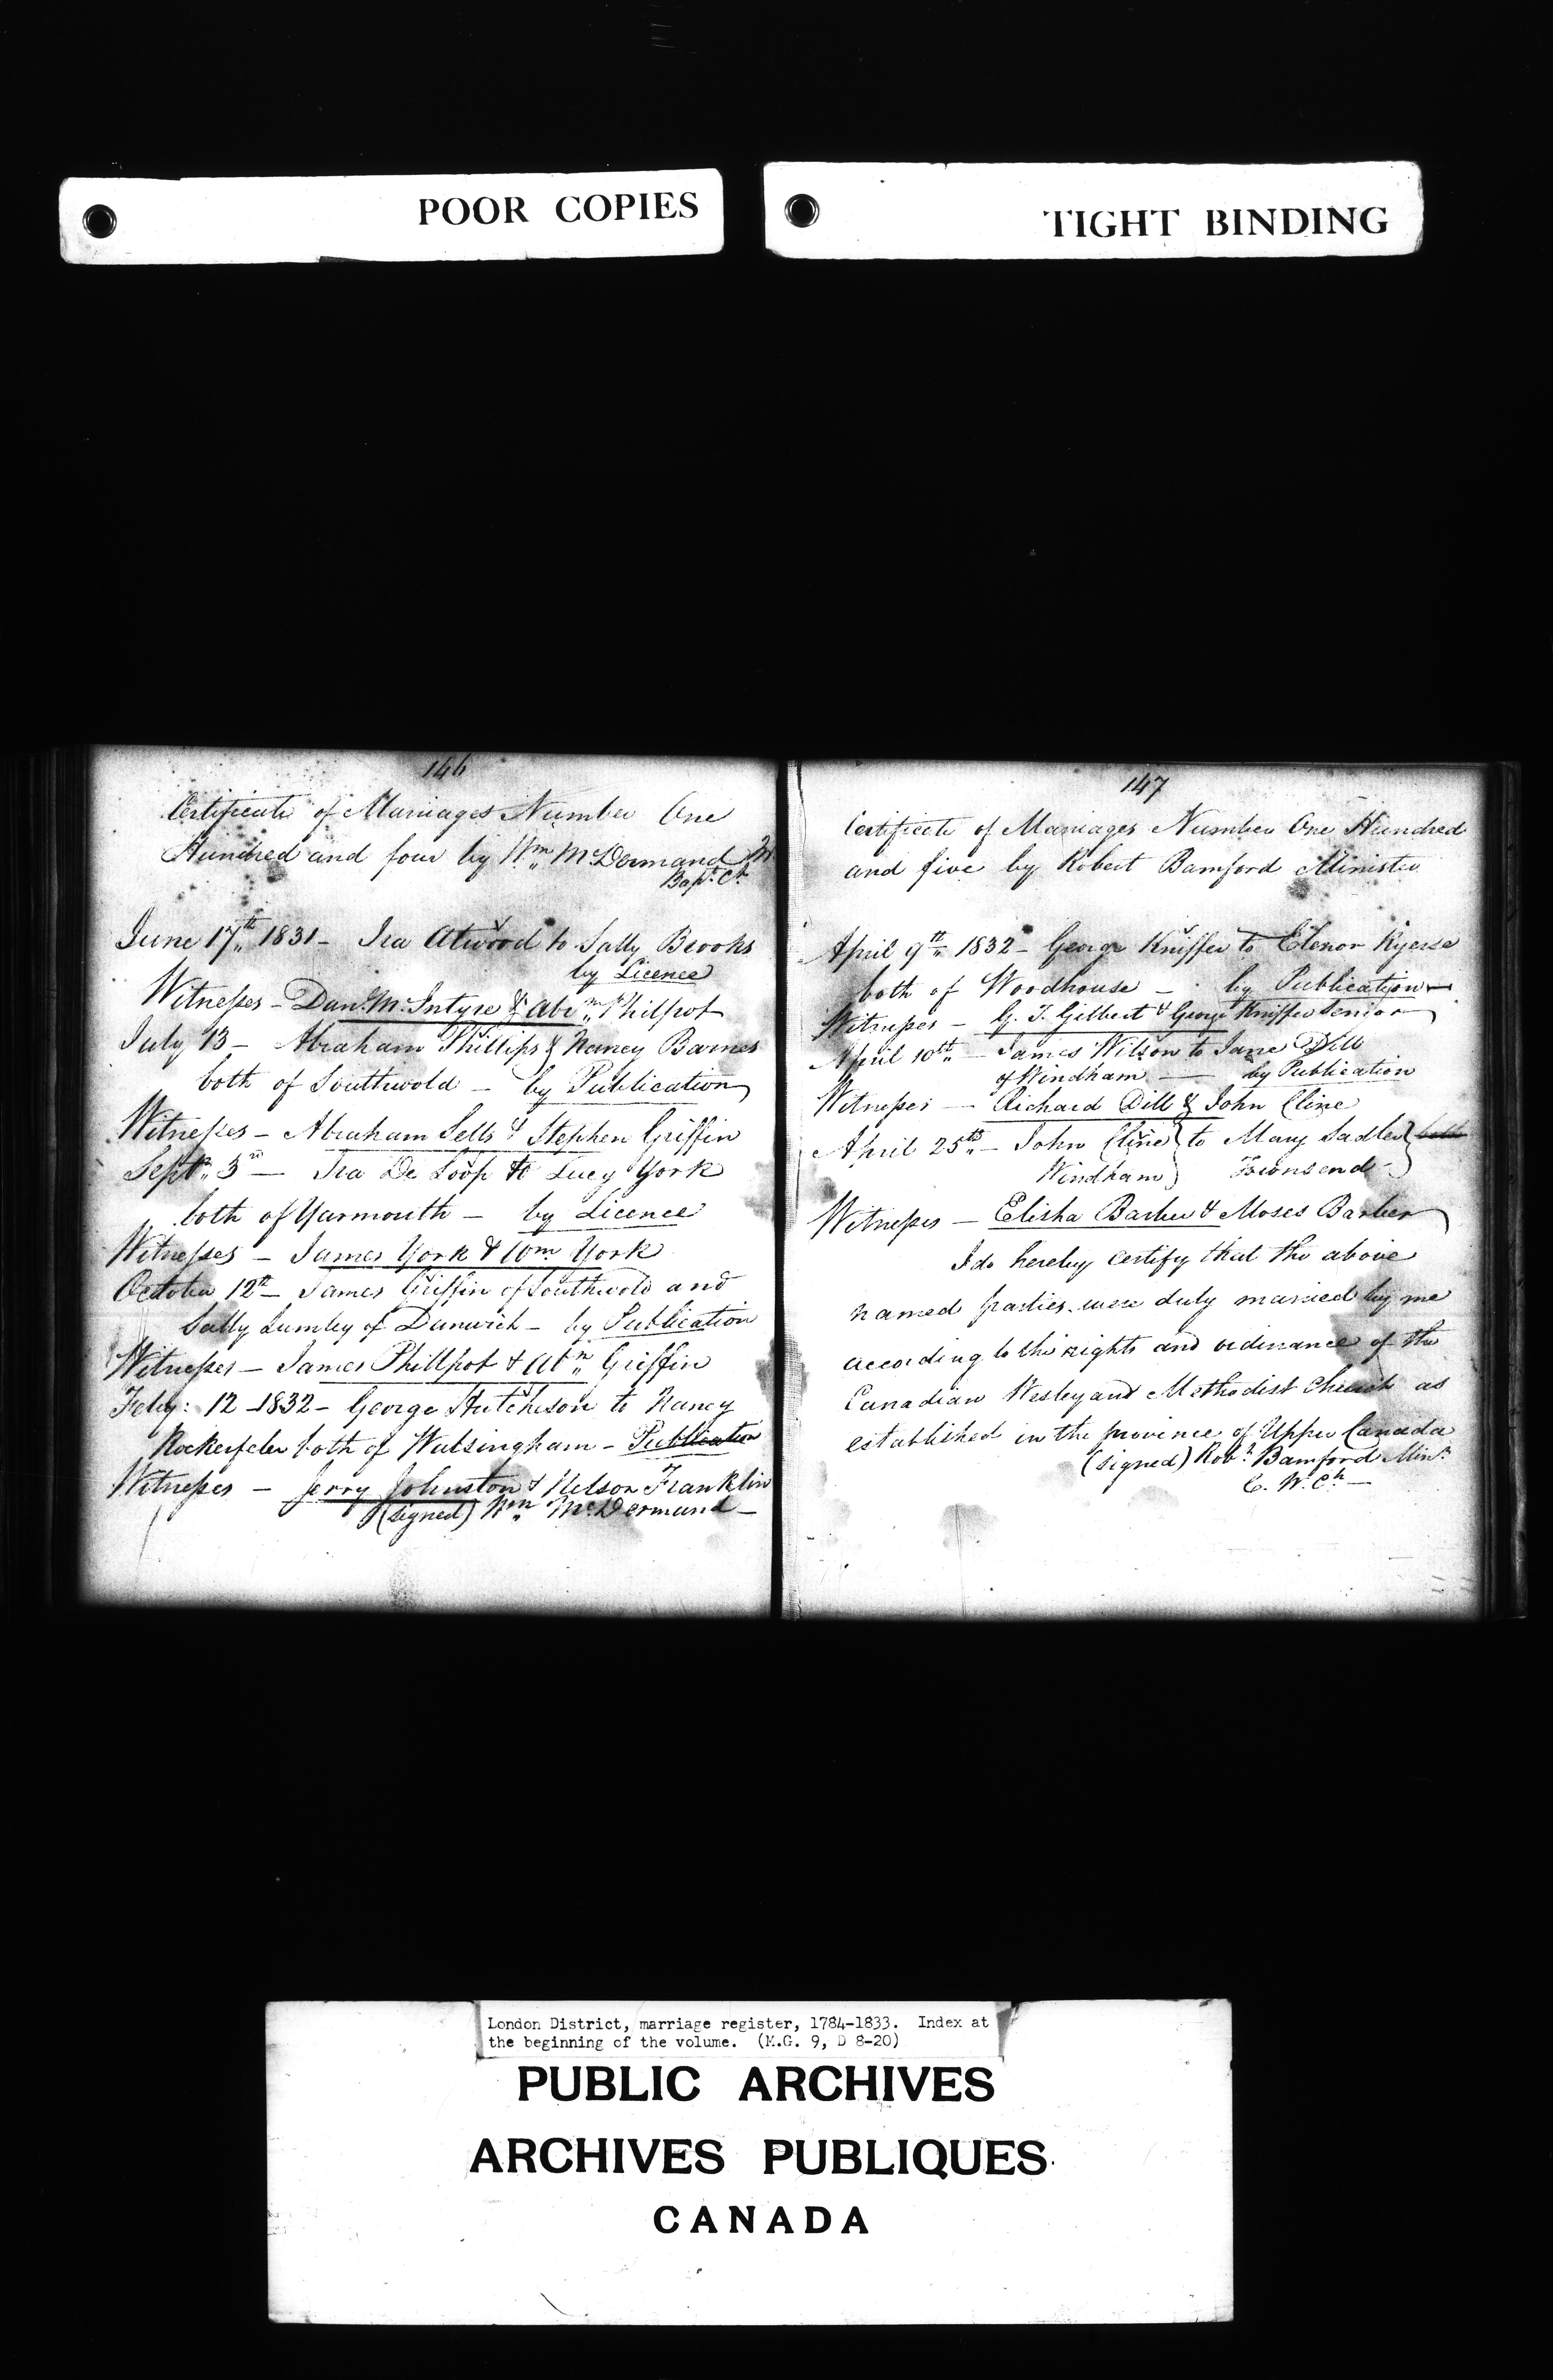 POOR COPIES
TIGHT BINDING
146
Certificate of Marriages Number One
Hundred and four by Wm McDermand M
Bapt. Ch
June 17th 1831 - Ira Atwood to Sally Brooks
by Licence
Witnesses - Danl. McIntyre & Abrm Philpot
July 13 - Abraham Phillips & Nancy Barnes
both of Southwold - by Publication
Witnesses - Abraham Sells & Stephen Griffin
Septr. 3rd - Ira De Loop to Lucy York
both of Yarmouth - by Licence
Witnesses - James York & Wm York
October 12th - James Griffin of Southwold and
Sally Lumley of Dunwich - by Publication
Witnesses - James Phillpot & Abm Griffin
Feby: 12 - 1832 - George Hutcheson to Nancy
Rockerfeler both of Walsingham - Publication
Witnesses - Jerry Johnston & Nelson Franklin
(signed) Wm McDermand -
147
Certificate of Marriages Number One Hundred
and five by Robert Bamford Minister
April 9th 1832 - George Kniffer to Elenor Ryerse
both of Woodhouse - by Publication
Witnesses - G. T. Gilbert & George Kniffer Senior
April 10th - James Wilson to Jane Dill
of Windham - by Publication
Witnesses - Richard Dill & John Cline
April 25th - John Cline } to Mary Sadler } both
Windham } Townsend }
Witnesses - Elisha Barber & Moses Barber
I do hereby certify that the above
named parties were duly married by me
according to the rights and ordinance of the
Canadian Wesleyand Methodist Church as
established in the province of Upper Canada
(signed) Robt. Bamford Minr.
C. W. Ch -
London District, marriage register, 1784-1833. Index at
the beginning of the volume. (M.G. 9, D 8-20)
PUBLIC ARCHIVES
ARCHIVES PUBLIQUES
CANADA